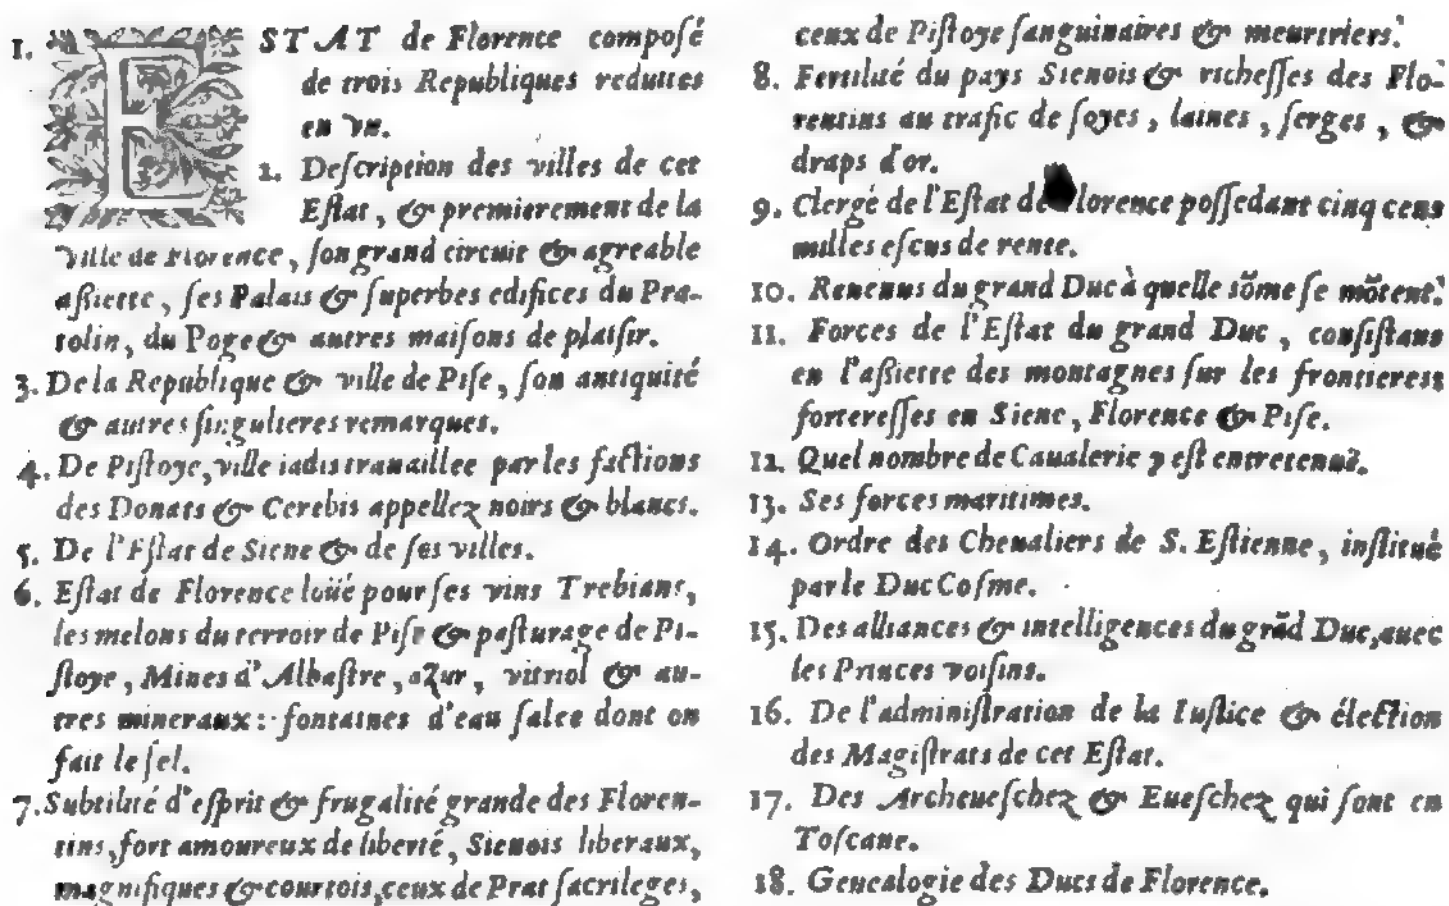 1. ESTAT de Florence composé
de trois Republiques reduites
en vn.
2. Description des villes de cet
Estat, & premierement de la
ville de Florence, son grand circuit & agreable
assiette, ses Palais & superbes edifices du Pra-
tolin, du Poge & autres maisons de plaisir.
3. De la Republique & ville de Pise, son antiquité
& autres singulieres remarques.
4. De Pistoye, ville iadis trauaillee par les factions
des Donats & Cerebis appellez noirs & blancs.
5. De l'Estat de Siene & de ses villes.
6. Estat de Florence loüé pour ses vins Trebians,
les melons du terroir de Pise & pasturage de Pi-
stoye, Mines d'Albastre, azur, vitriol & au-
tres mineraux: fontaines d'eau salee dont on
fait le sel.
7. Subtilité d'esprit & frugalité grande des Floren-
tins, fort amoureux de liberté, Sienois liberaux,
magnifiques & courtois, ceux de Prat sacrileges,
ceux de Pistoye sanguinaires & meurtriers.
8. Fertilité du pays Sienois & richesses des Flo-
rentins au trafic de soyes, laines, serges, &
draps d'or.
9. Clergé de l'Estat de lorence possedant cinq cens
milles escus de rente.
10. Reuenus du grand Duc à quelle sõme se mõtent.
11. Forces de l'Estat du grand Duc, consistans
en l'assiette des montagnes sur les frontieres
forteresses en Siene, Florence & Pise.
12. Quel nombre de Caualerie y est entretenuë.
13. Ses forces maritimes.
14. Ordre des Cheualiers de S. Estienne, institué
par le Duc Cosme.
15. Des alliances & intelligences du grãd Duc, auec
les Princes voisins.
16. De l'administration de la Iustice & élection
des Magistrats de cet Estat.
17. Des Archeueschez & Eueschez qui sont en
Toscane.
18. Genealogie des Ducs de Florence.